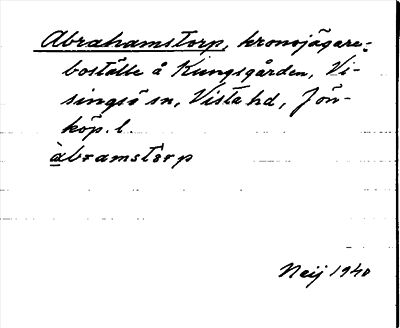 Abrahamstorp, kronojägare-
boställe å Kungsgården, Vi-
singsö sn, Vista hd, Jön-
köp. l.
àbramstòrp
Neij 1940